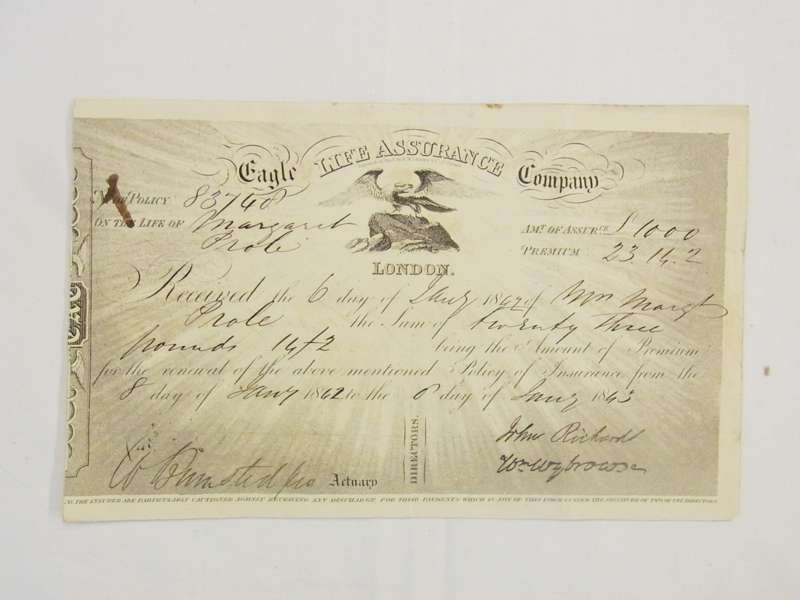 Eagle LIFE ASSURANCE Company
No. of POLICY 83748
ON THE LIFE OF Margaret
Prole
AMT. OF ASSURCE. £ 1000
PREMIUM 23.14.2
LONDON.
Received the 6 day of Jany 1862 of Mrs Margt
Prole the Sum of twenty three
pounds 14/2 being the Amount of Premium
for the renewal of the above mentioned Policy of Insurance from the
8 day of Jany 1862 to the 6 day of Jany 1863
DIRECTORS.
John Richard
Wm Wybrow
Actuary
THE INSURED ARE PARTICULARLY CAUTIONED AGAINST RECEIVING ANY DISCHARGE FOR THEIR PAYMENTS WHICH IS NOT OF THIS FORM & UNDER THE SIGNATURE OF TWO OF THE DIRECTORS